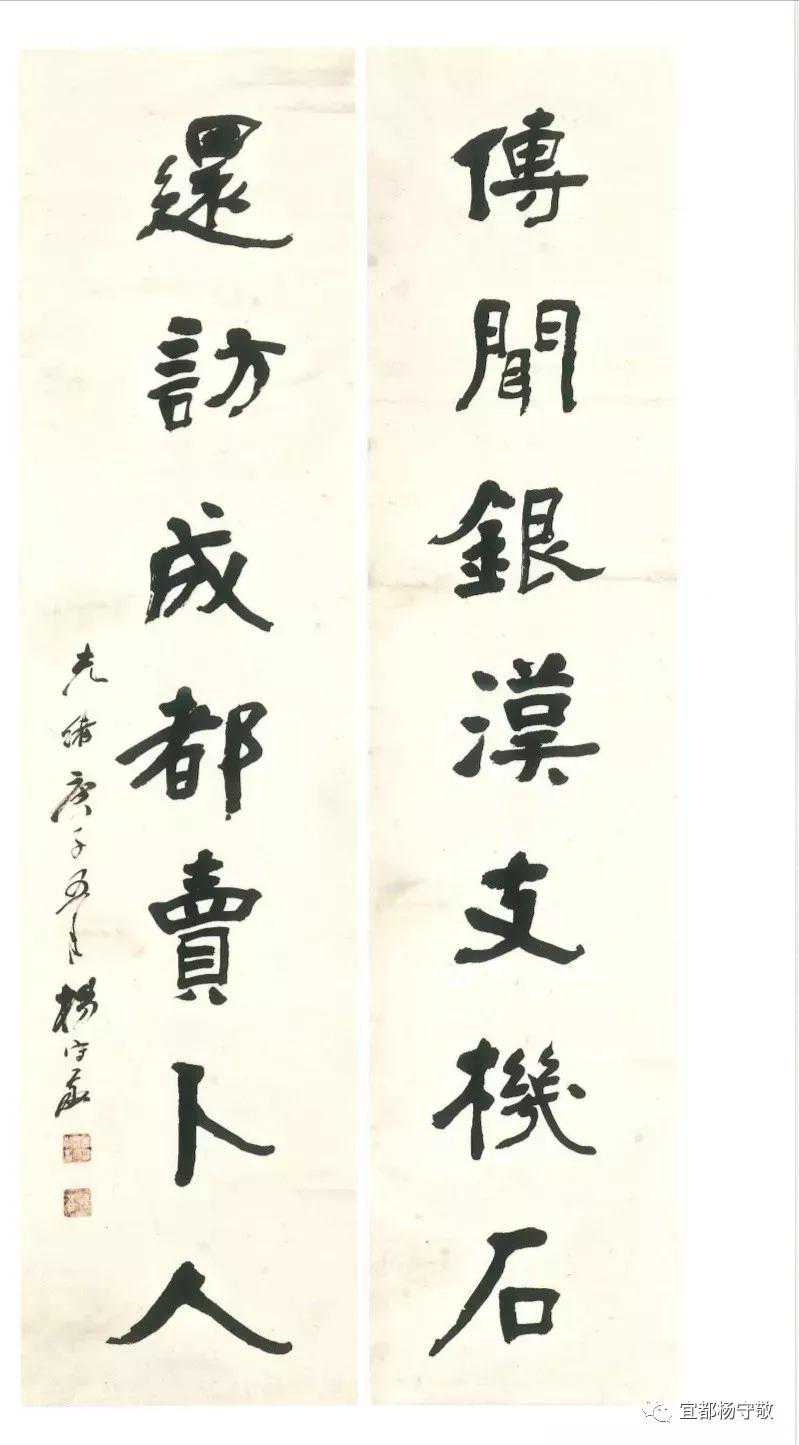 傳聞銀漢支機石
還訪成都賣卜人
光緒庚子五月楊守敬
宜都杨守敬